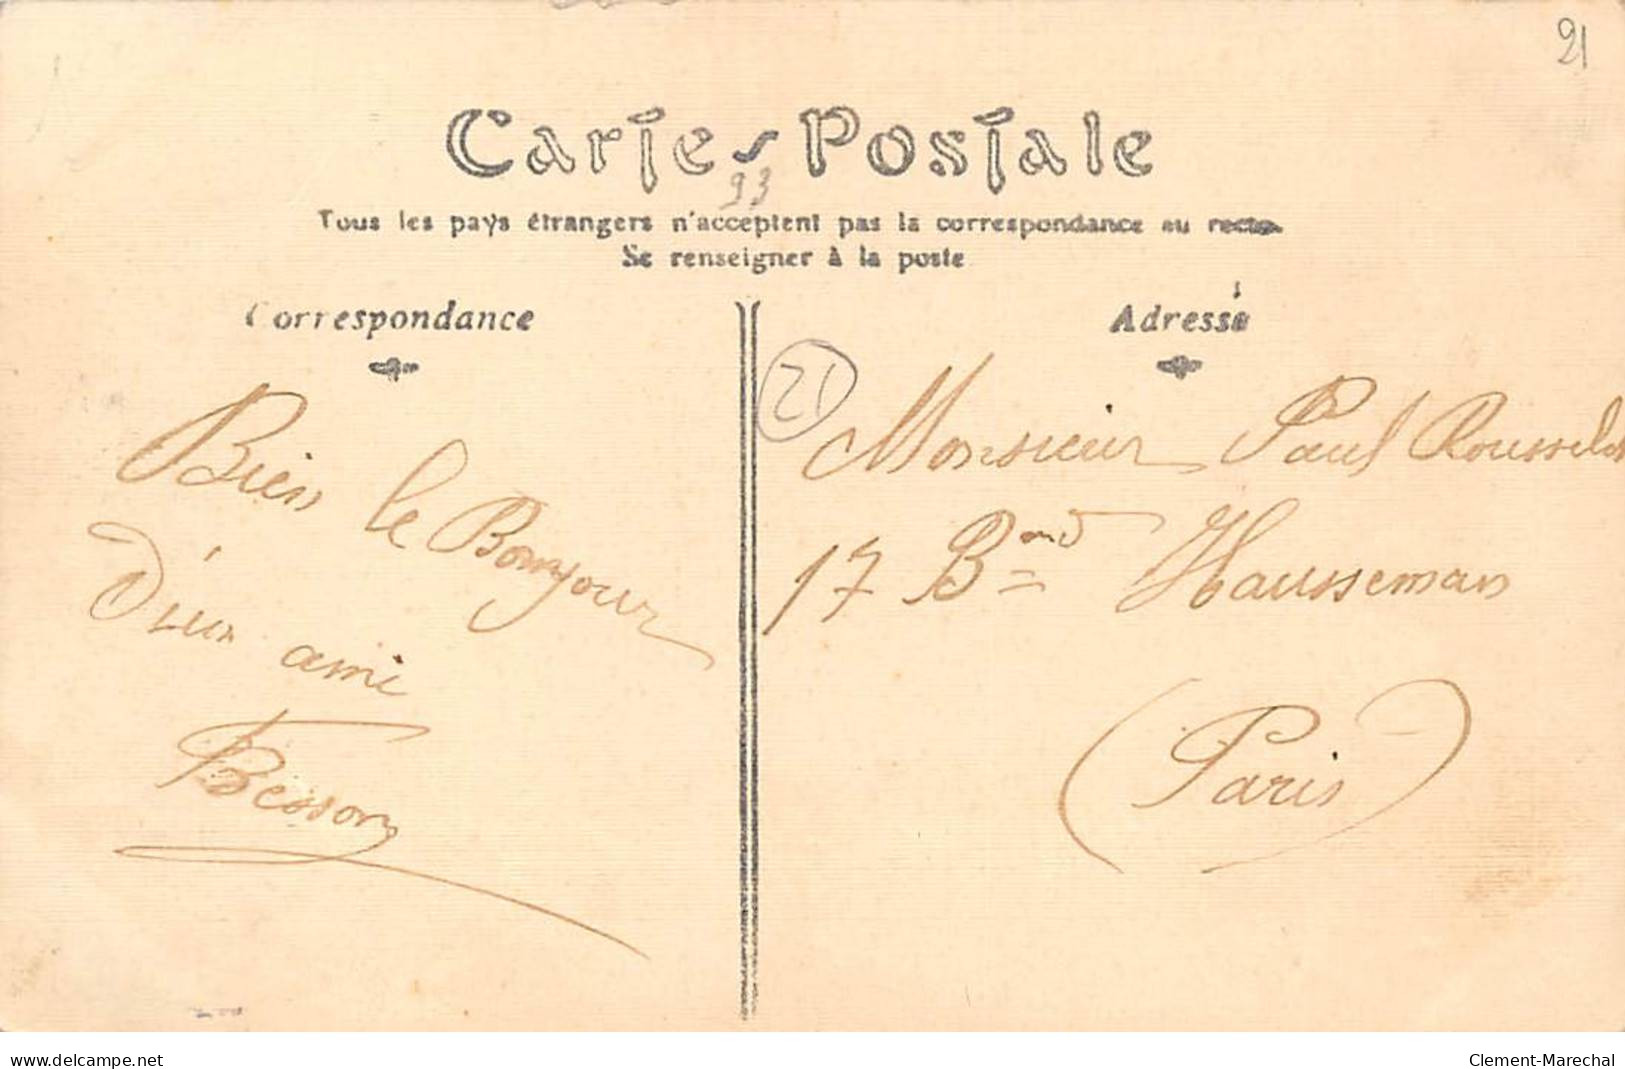 21
Carte Postale
93
Tous les pays étrangers n'acceptent pas la correspondance au recto
Se renseigner à la poste
Correspondance
Bien le Bonjour
D'un ami
Besson
Adresse
21
Monsieur Paul Rousselot
17 Bnd Hausseman
(Paris)
www.delcampe.net
Clement-Marechal